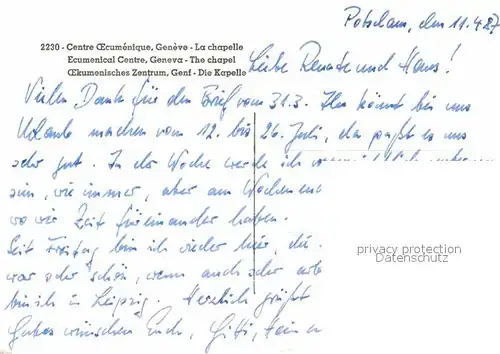 Potsdam, den 11.4.87
2230 - Centre Œcuménique, Genève - La chapelle
Ecumenical Centre, Geneva - The chapel
Œkumenisches Zentrum, Genf - Die Kapelle
Liebe Renate und Hans!
Vielen Dank für den Brief vom 31.3. Ihr könnt bei uns
Urlaub machen vom 12. bis 26. Juli, da paßt es uns
sehr gut. In der Woche werde ich
sein, wie immer, aber am Wochenend
wo wir Zeit füreinander haben.
Seit Freitag bin ich wieder hier, die
war sehr schön, wenn auch sehr
bin ich in Leipzig. Herzlich grüßt
Gutes wünschen Euch, Gitti,
privacy protection
Datenschutz